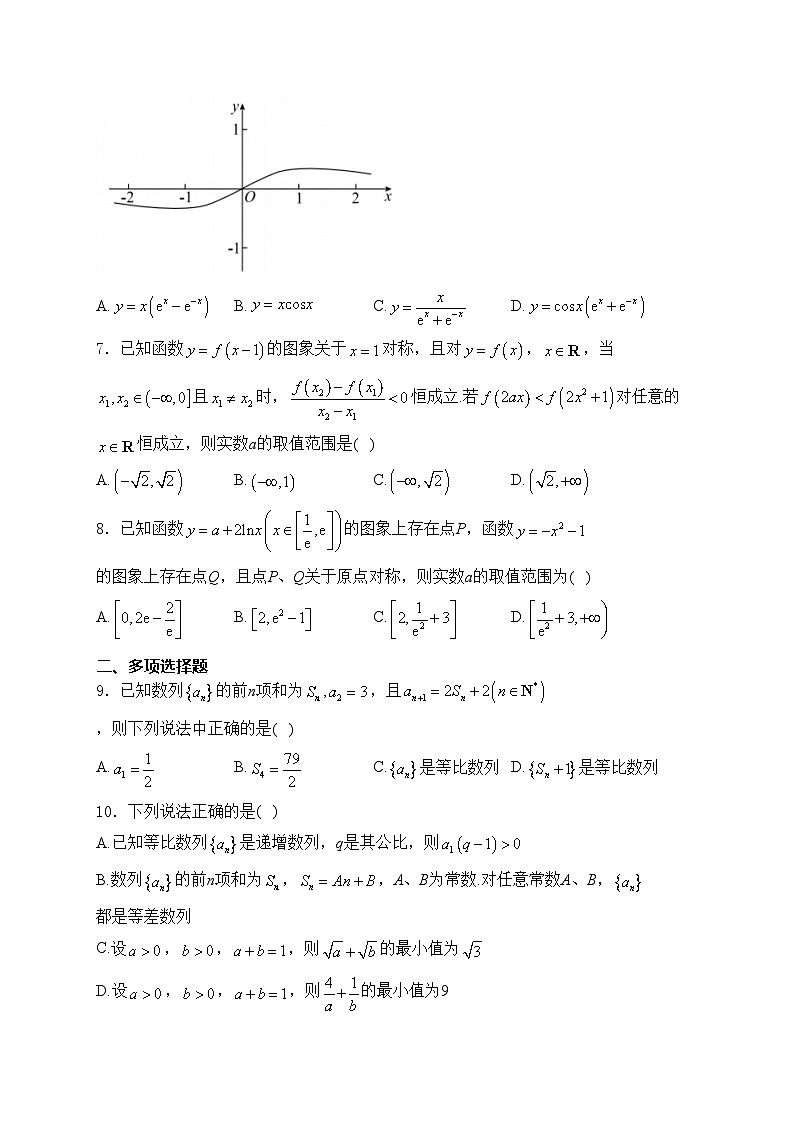 y
1
-2 -1 O 1 2 x
-1
A. y = x(eˣ − e⁻ˣ) B. y = xcosx C. y = x/(eˣ + e⁻ˣ) D. y = cosx(eˣ + e⁻ˣ)
7．已知函数y = f(x−1)的图象关于x=1对称，且对y = f(x)，x∈R，当
x₁,x₂∈(−∞,0]且x₁≠x₂时，(f(x₂)−f(x₁))/(x₂−x₁)<0恒成立.若f(2ax)<f(2x²+1)对任意的
x∈R恒成立，则实数a的取值范围是( )
A.(−√2,√2) B.(−∞,1) C.(−∞,√2) D.(√2,+∞)
8．已知函数y=a+2lnx(x∈[1/e,e])的图象上存在点P，函数y=−x²−1
的图象上存在点Q，且点P、Q关于原点对称，则实数a的取值范围为( )
A.[0,2e−2/e] B.[2,e²−1] C.[2,1/e²+3] D.[1/e²+3,+∞)
二、多项选择题
9．已知数列{aₙ}的前n项和为Sₙ,a₂=3，且aₙ₊₁=2Sₙ+2(n∈N*)
，则下列说法中正确的是( )
A.a₁=1/2 B.S₄=79/2 C.{aₙ}是等比数列 D.{Sₙ+1}是等比数列
10．下列说法正确的是( )
A.已知等比数列{aₙ}是递增数列，q是其公比，则a₁(q−1)>0
B.数列{aₙ}的前n项和为Sₙ，Sₙ=An+B，A、B为常数.对任意常数A、B，{aₙ}
都是等差数列
C.设a>0，b>0，a+b=1，则√a+√b的最小值为√3
D.设a>0，b>0，a+b=1，则4/a+1/b的最小值为9